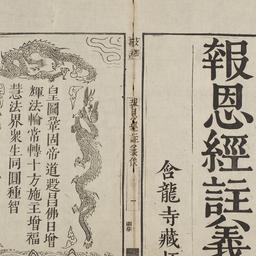 報恩經註義
含龍寺藏
皇圖鞏固帝道遐昌佛日增
輝法輪常轉十方施主增福
慧法界衆生同圓種智